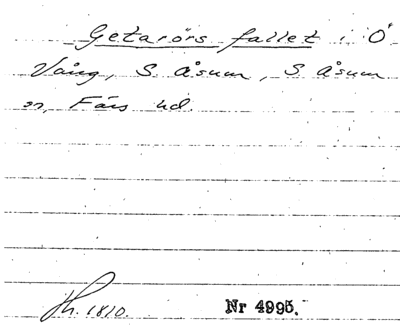 Getarörs fallet i Ö
Vång, S. Åsum, S. Åsum
sn, Färs hd.
Jh. 1810.
Nr 4995.